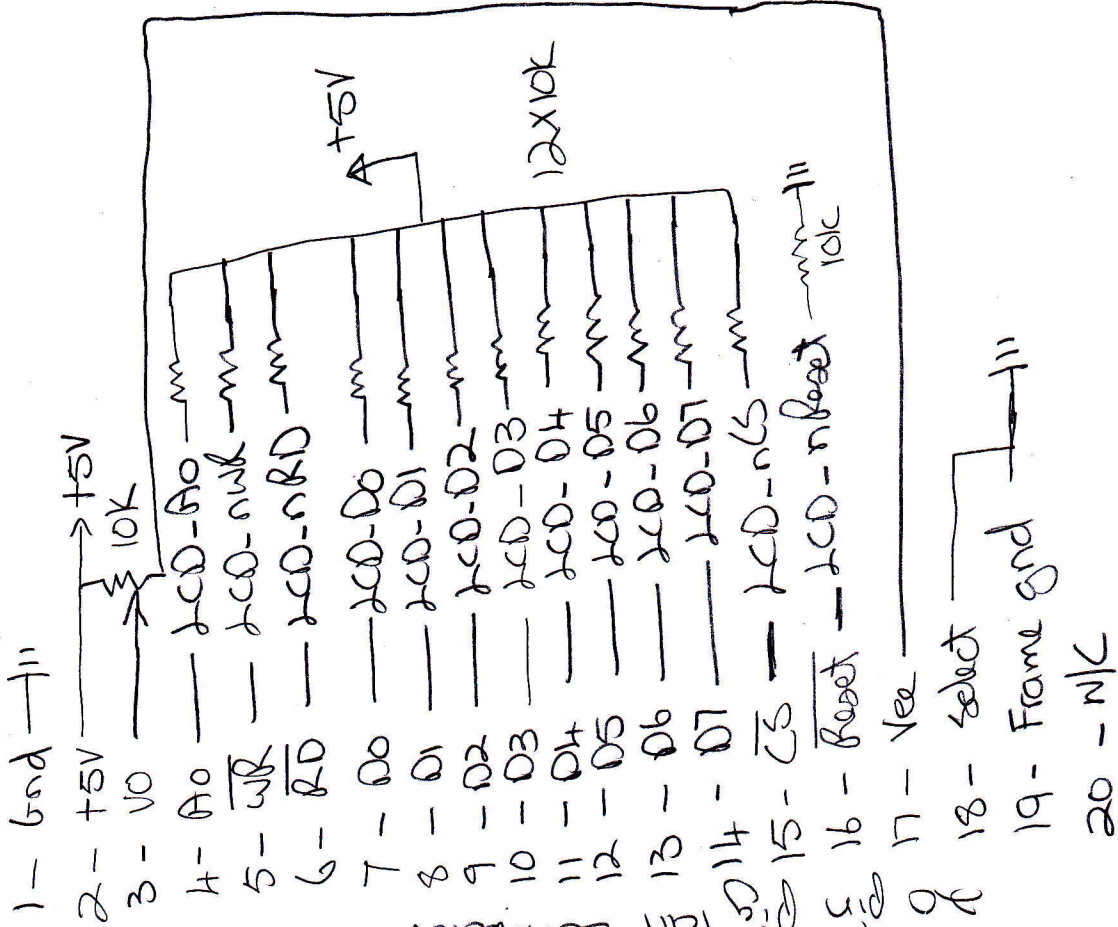 1 - Gnd
2 - +5V → +5V
3 - VO 10K
4 - A0 — LCD-A0
5 - WR — LCD-nWR
6 - RD — LCD-nRD
7 - D0 — LCD-D0
8 - D1 — LCD-D1
9 - D2 — LCD-D2
10 - D3 — LCD-D3
11 - D4 — LCD-D4
12 - D5 — LCD-D5
13 - D6 — LCD-D6
14 - D7 — LCD-D7
15 - CS — LCD-nCS
16 - Reset — LCD-nReset 10K
17 - Vee
18 - Select
19 - Frame gnd
20 - N/C
+5V
12X10K